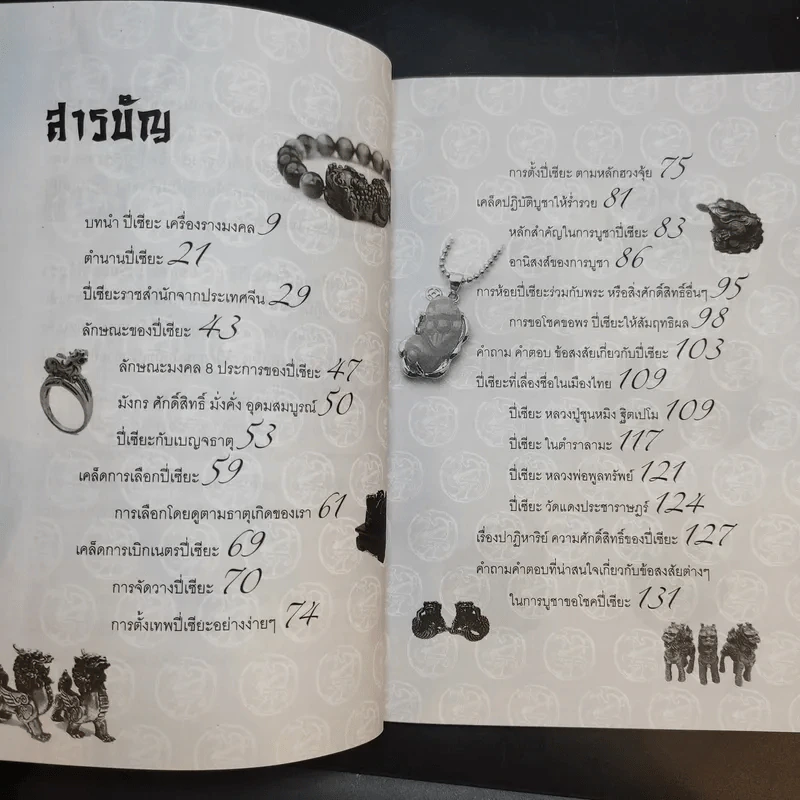 สารบัญ
บทนำ ปี่เซียะ เครื่องรางมงคล 9
ตำนานปี่เซียะ 21
ปี่เซียะราชสำนักจากประเทศจีน 29
ลักษณะของปี่เซียะ 43
ลักษณะมงคล 8 ประการของปี่เซียะ 47
มังกร ศักดิ์สิทธิ์ มั่งคั่ง อุดมสมบูรณ์ 50
ปี่เซียะกับเบญจธาตุ 53
เคล็ดการเลือกปี่เซียะ 59
การเลือกโดยดูตามธาตุเกิดของเรา 61
เคล็ดการเบิกเนตรปี่เซียะ 69
การจัดวางปี่เซียะ 70
การตั้งเทพปี่เซียะอย่างง่ายๆ 74
การตั้งปี่เซียะ ตามหลักฮวงจุ้ย 75
เคล็ดปฏิบัติบูชาให้ร่ำรวย 81
หลักสำคัญในการบูชาปี่เซียะ 83
อานิสงส์ของการบูชา 86
การห้อยปี่เซียะร่วมกับพระ หรือสิ่งศักดิ์สิทธิ์อื่นๆ 95
การขอโชคขอพร ปี่เซียะให้สัมฤทธิผล 98
คำถาม คำตอบ ข้อสงสัยเกี่ยวกับปี่เซียะ 103
ปี่เซียะที่เลื่องชื่อในเมืองไทย 109
ปี่เซียะ หลวงปู่ชุนหมิง ฐิตเปโม 109
ปี่เซียะ ในตำราลามะ 117
ปี่เซียะ หลวงพ่อพูลทรัพย์ 121
ปี่เซียะ วัดแดงประชาราษฎร์ 124
เรื่องปาฏิหาริย์ ความศักดิ์สิทธิ์ของปี่เซียะ 127
คำถามคำตอบที่น่าสนใจเกี่ยวกับข้อสงสัยต่างๆ
ในการบูชาขอโชคปี่เซียะ 131